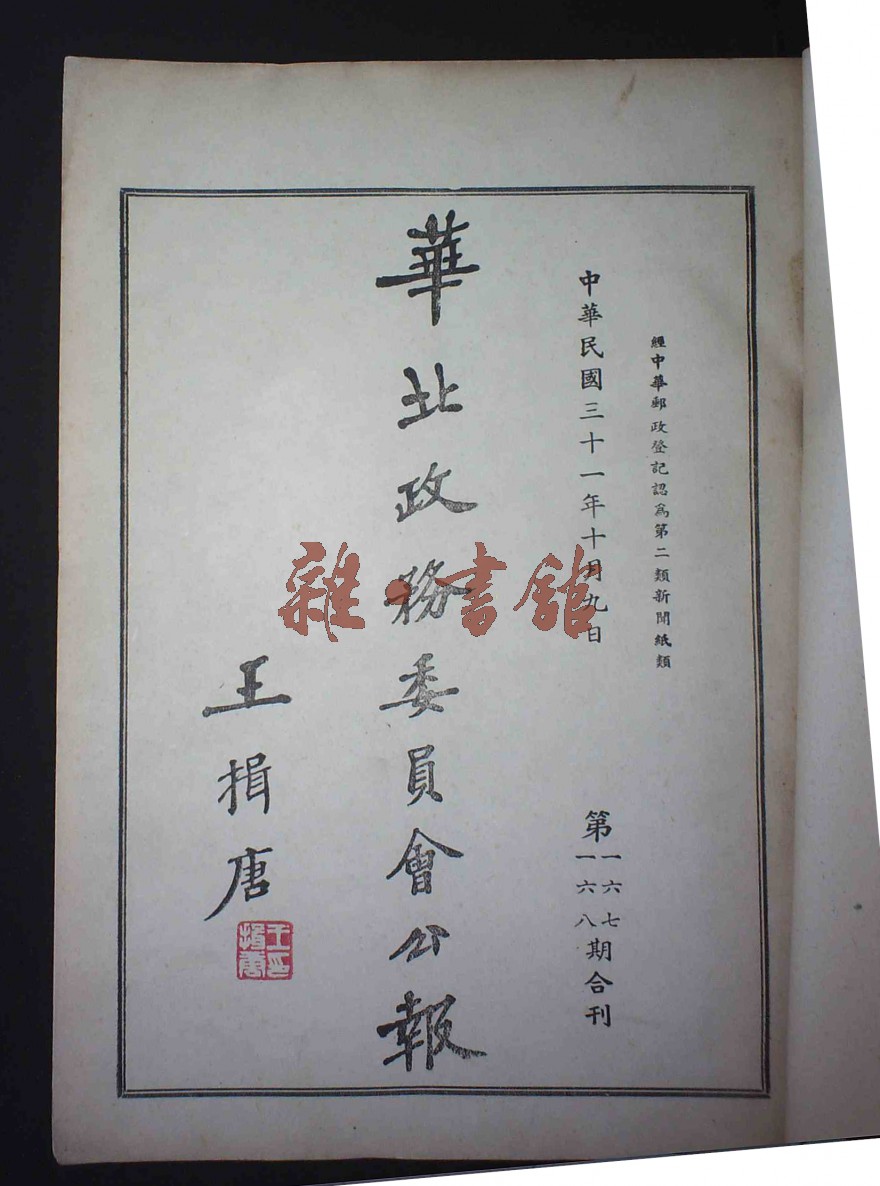 經中華郵政登記認爲第二類新聞紙類
中華民國三十一年十月九日
第一六七
一六八期合刊
華北政務委員會公報
王揖唐
王揖唐印
雜·書館